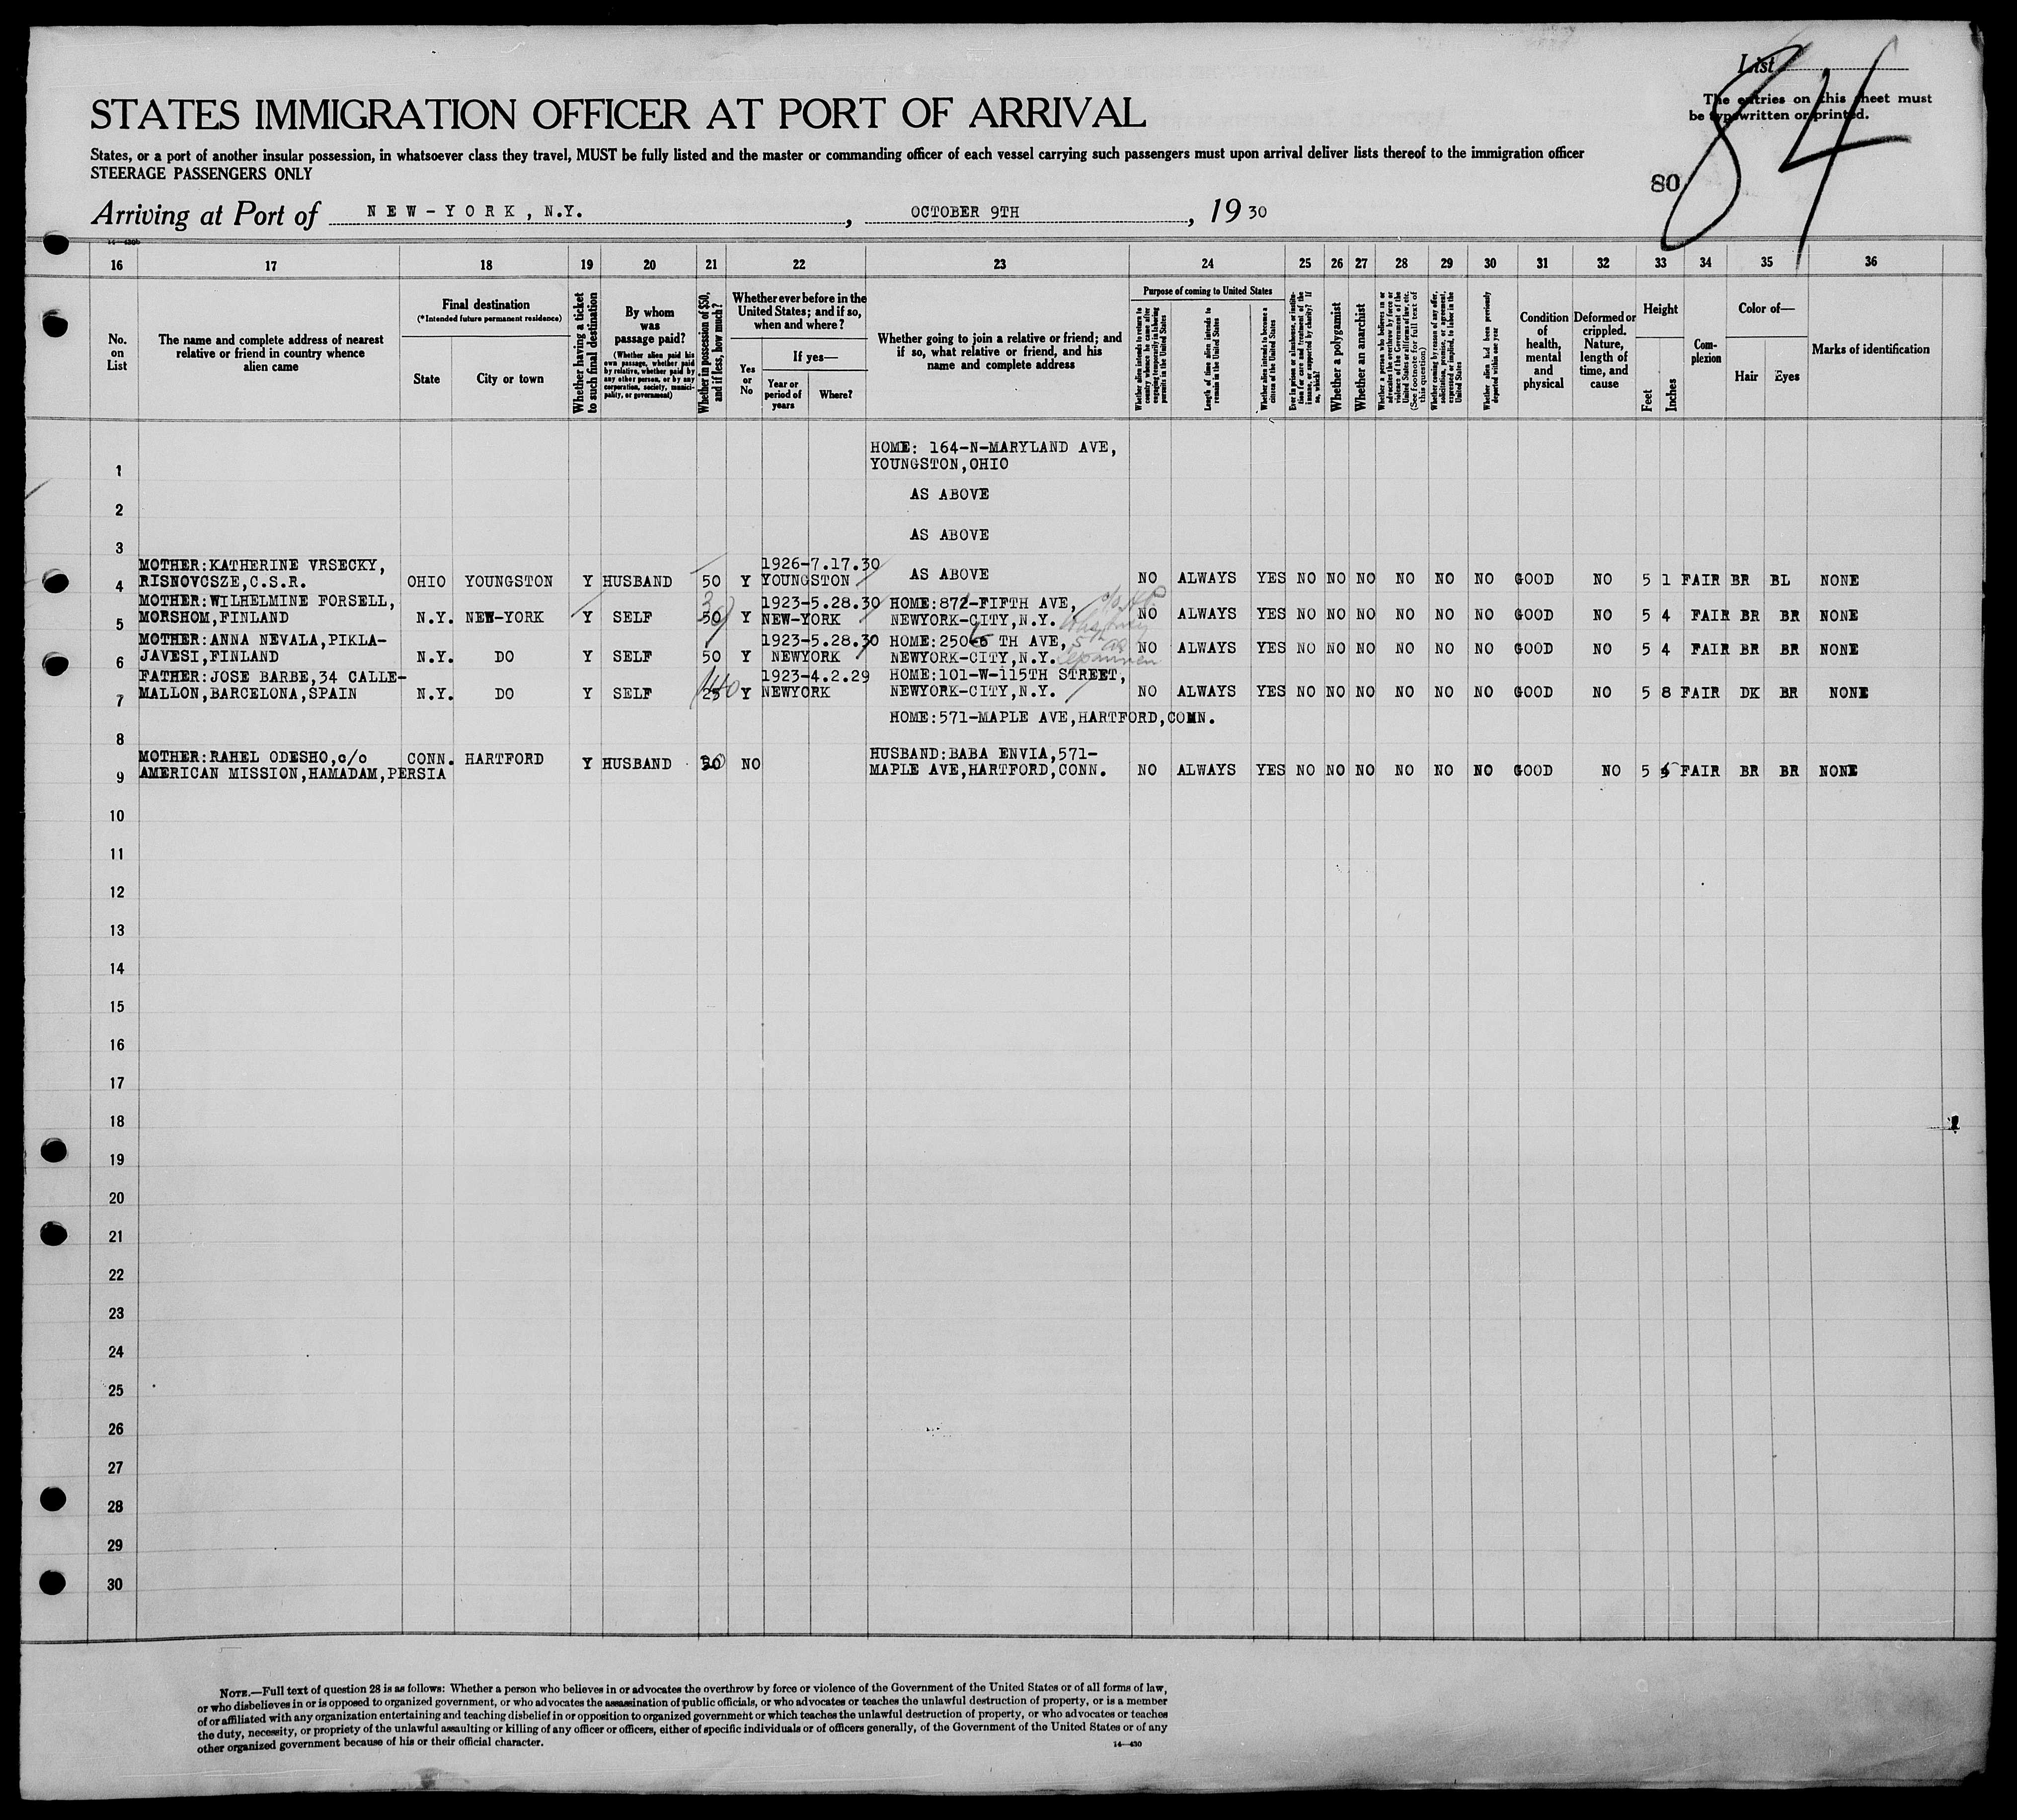 List
The entries on this sheet must
be typewritten or printed.
84
80
STATES IMMIGRATION OFFICER AT PORT OF ARRIVAL
States, or a port of another insular possession, in whatsoever class they travel, MUST be fully listed and the master or commanding officer of each vessel carrying such passengers must upon arrival deliver lists thereof to the immigration officer
STEERAGE PASSENGERS ONLY
Arriving at Port of NEW-YORK, N.Y., OCTOBER 9TH, 1930
14—430b
16 17 18 19 20 21 22 23 24 25 26 27 28 29 30 31 32 33 34 35 36
No. on List
The name and complete address of nearest relative or friend in country whence alien came
Final destination
(*Intended future permanent residence)
State
City or town
Whether having a ticket to such final destination
By whom was passage paid?
(Whether alien paid his own passage, whether paid by relative, whether paid by any other person, or by any corporation, society, municipality, or government)
Whether in possession of $50, and if less, how much?
Whether ever before in the United States; and if so, when and where?
Yes or No
If yes—
Year or period of years
Where?
Whether going to join a relative or friend; and if so, what relative or friend, and his name and complete address
Purpose of coming to United States
Whether alien intends to return to country whence he came after engaging temporarily in laboring pursuits in the United States
Length of time alien intends to remain in the United States
Whether alien intends to become a citizen of the United States
Ever in prison or almshouse, or institution for care and treatment of the insane, or supported by charity? If so, which?
Whether a polygamist
Whether an anarchist
Whether a person who believes in or advocates the overthrow by force or violence of the Government of the United States or all forms of law, etc. (See footnote for full text of this question)
Whether coming by reason of any offer, solicitation, promise, or agreement, expressed or implied, to labor in the United States
Whether alien had been previously deported within one year
Condition of health, mental and physical
Deformed or crippled. Nature, length of time, and cause
Height
Feet
Inches
Complexion
Color of—
Hair
Eyes
Marks of identification
1 HOME: 164-N-MARYLAND AVE,
YOUNGSTON, OHIO
2 AS ABOVE
3 AS ABOVE
MOTHER:KATHERINE VRSECKY, 1926-7.17.30
4 RISNOVCSZE,C.S.R. OHIO YOUNGSTON Y HUSBAND 50 Y YOUNGSTON AS ABOVE NO ALWAYS YES NO NO NO NO NO NO GOOD NO 5 1 FAIR BR BL NONE
MOTHER:WILHELMINE FORSELL, 1923-5.28.30 HOME:872-FIFTH AVE,
5 MORSHOM,FINLAND N.Y. NEW-YORK Y SELF 50 Y NEW-YORK NEWYORK-CITY,N.Y. NO ALWAYS YES NO NO NO NO NO NO GOOD NO 5 4 FAIR BR BR NONE
MOTHER:ANNA NEVALA,PIKLA- 1923-5.28.30 HOME:250 6 TH AVE,
6 JAVESI,FINLAND N.Y. DO Y SELF 50 Y NEWYORK NEWYORK-CITY,N.Y. NO ALWAYS YES NO NO NO NO NO NO GOOD NO 5 4 FAIR BR BR NONE
FATHER:JOSE BARBE,34 CALLE- 140 1923-4.2.29 HOME:101-W-115TH STREET,
7 MALLON,BARCELONA,SPAIN N.Y. DO Y SELF 25 Y NEWYORK NEWYORK-CITY,N.Y. NO ALWAYS YES NO NO NO NO NO NO GOOD NO 5 8 FAIR DK BR NONE
8 HOME:571-MAPLE AVE,HARTFORD,CONN.
MOTHER:RAHEL ODESHO,c/o CONN. HARTFORD Y HUSBAND NO HUSBAND:BABA ENVIA,571-
9 AMERICAN MISSION,HAMADAM,PERSIA MAPLE AVE,HARTFORD,CONN. NO ALWAYS YES NO NO NO NO NO NO GOOD NO 5 5 FAIR BR BR NONE
10
11
12
13
14
15
16
17
18
19
20
21
22
23
24
25
26
27
28
29
30
NOTE.—Full text of question 28 is as follows: Whether a person who believes in or advocates the overthrow by force or violence of the Government of the United States or of all forms of law,
or who disbelieves in or is opposed to organized government, or who advocates the assassination of public officials, or who advocates or teaches the unlawful destruction of property, or is a member
of or affiliated with any organization entertaining and teaching disbelief in or opposition to organized government or which teaches the unlawful destruction of property, or who advocates or teaches
the duty, necessity, or propriety of the unlawful assaulting or killing of any officer or officers, either of specific individuals or of officers generally, of the Government of the United States or of any
other organized government because of his or their official character.
14—430